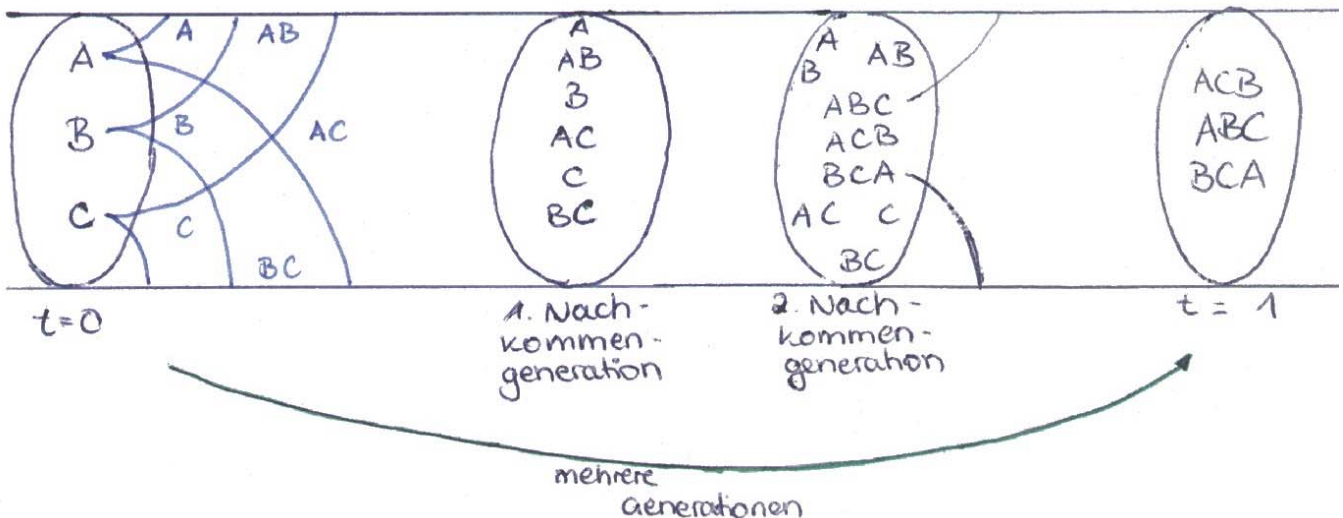 A
B
C
A
AB
B
AC
C
BC
A
AB
B
AC
C
BC
A
AB
B
ABC
ACB
BCA
AC C
BC
ACB
ABC
BCA
t=0
1. Nach-
kommen-
generation
2. Nach-
kommen-
generation
t = 1
mehrere
Generationen